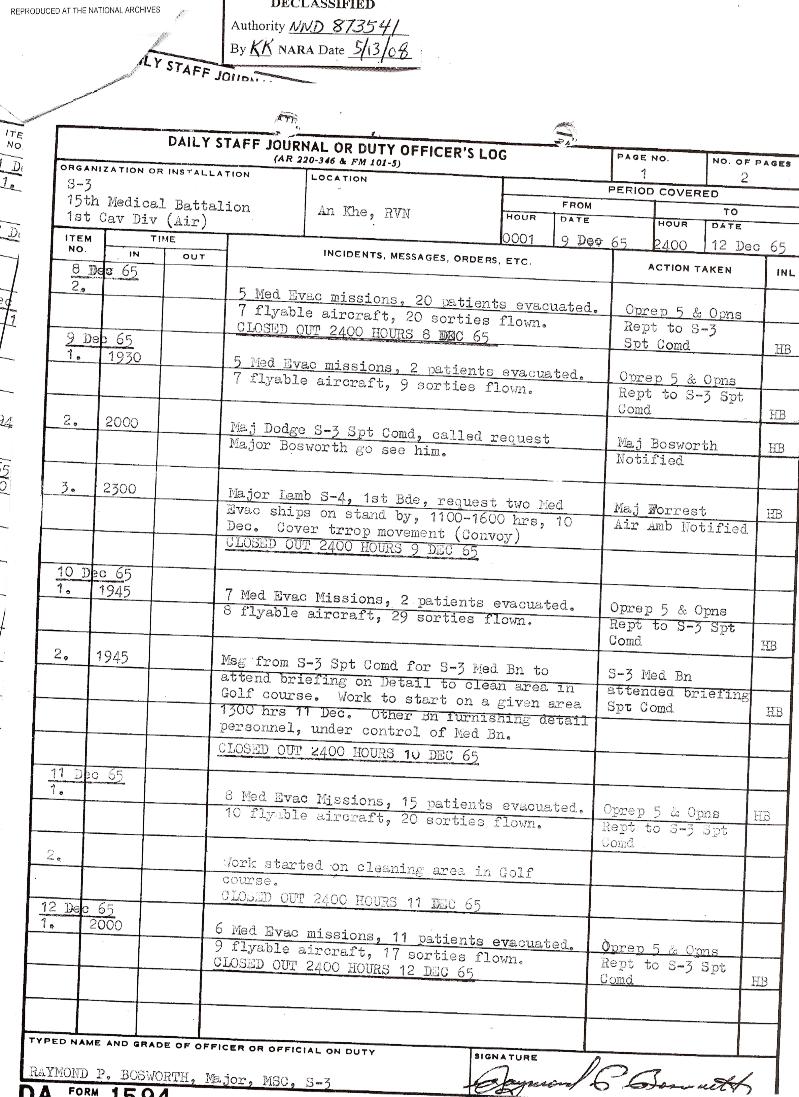 REPRODUCED AT THE NATIONAL ARCHIVES
DECLASSIFIED
Authority NND 873541
By KK NARA Date 5/13/08
ILY STAFF JOURN
ITE
NO
DAILY STAFF JOURNAL OR DUTY OFFICER'S LOG
(AR 220-346 & FM 101-5)
PAGE NO.
1
NO. OF PAGES
2
ORGANIZATION OR INSTALLATION
S-3
15th Medical Battalion
1st Cav Div (Air)
LOCATION
An Khe, RVN
PERIOD COVERED
FROM
TO
HOUR
DATE
HOUR
DATE
0001
9 Dec 65
2400
12 Dec 65
ITEM NO.
TIME
IN
OUT
INCIDENTS, MESSAGES, ORDERS, ETC.
ACTION TAKEN
INL
8 Dec 65
2.
5 Med Evac missions, 20 patients evacuated.
7 flyable aircraft, 20 sorties flown.
CLOSED OUT 2400 HOURS 8 DEC 65
Oprep 5 & Opns
Rept to S-3
Spt Comd
HB
9 Dec 65
1. 1930
5 Med Evac missions, 2 patients evacuated.
7 flyable aircraft, 9 sorties flown.
Oprep 5 & Opns
Rept to S-3 Spt
Comd
HB
2. 2000
Maj Dodge S-3 Spt Comd, called request
Major Bosworth go see him.
Maj Bosworth
Notified
HB
3. 2300
Major Lamb S-4, 1st Bde, request two Med
Evac ships on stand by, 1100-1600 hrs, 10
Dec. Cover trrop movement (Convoy)
CLOSED OUT 2400 HOURS 9 DEC 65
Maj Forrest
Air Amb Notified
HB
10 Dec 65
1. 1945
7 Med Evac Missions, 2 patients evacuated.
8 flyable aircraft, 29 sorties flown.
Oprep 5 & Opns
Rept to S-3 Spt
Comd
HB
2. 1945
Msg from S-3 Spt Comd for S-3 Med Bn to
attend briefing on Detail to clean area in
Golf course. Work to start on a given area
1300 hrs 11 Dec. Other Bn furnishing detail
personnel, under control of Med Bn.
CLOSED OUT 2400 HOURS 10 DEC 65
S-3 Med Bn
attended briefing
Spt Comd
HB
11 Dec 65
1.
8 Med Evac Missions, 15 patients evacuated.
10 flyable aircraft, 20 sorties flown.
Oprep 5 & Opns
Rept to S-3 Spt
Comd
HB
2.
Work started on cleaning area in Golf
course.
CLOSED OUT 2400 HOURS 11 DEC 65
12 Dec 65
1. 2000
6 Med Evac missions, 11 patients evacuated.
9 flyable aircraft, 17 sorties flown.
CLOSED OUT 2400 HOURS 12 DEC 65
Oprep 5 & Opns
Rept to S-3 Spt
Comd
HB
TYPED NAME AND GRADE OF OFFICER OR OFFICIAL ON DUTY
RAYMOND P. BOSWORTH, Major, MSC, S-3
SIGNATURE
Raymond P Bosworth
DA FORM 1594